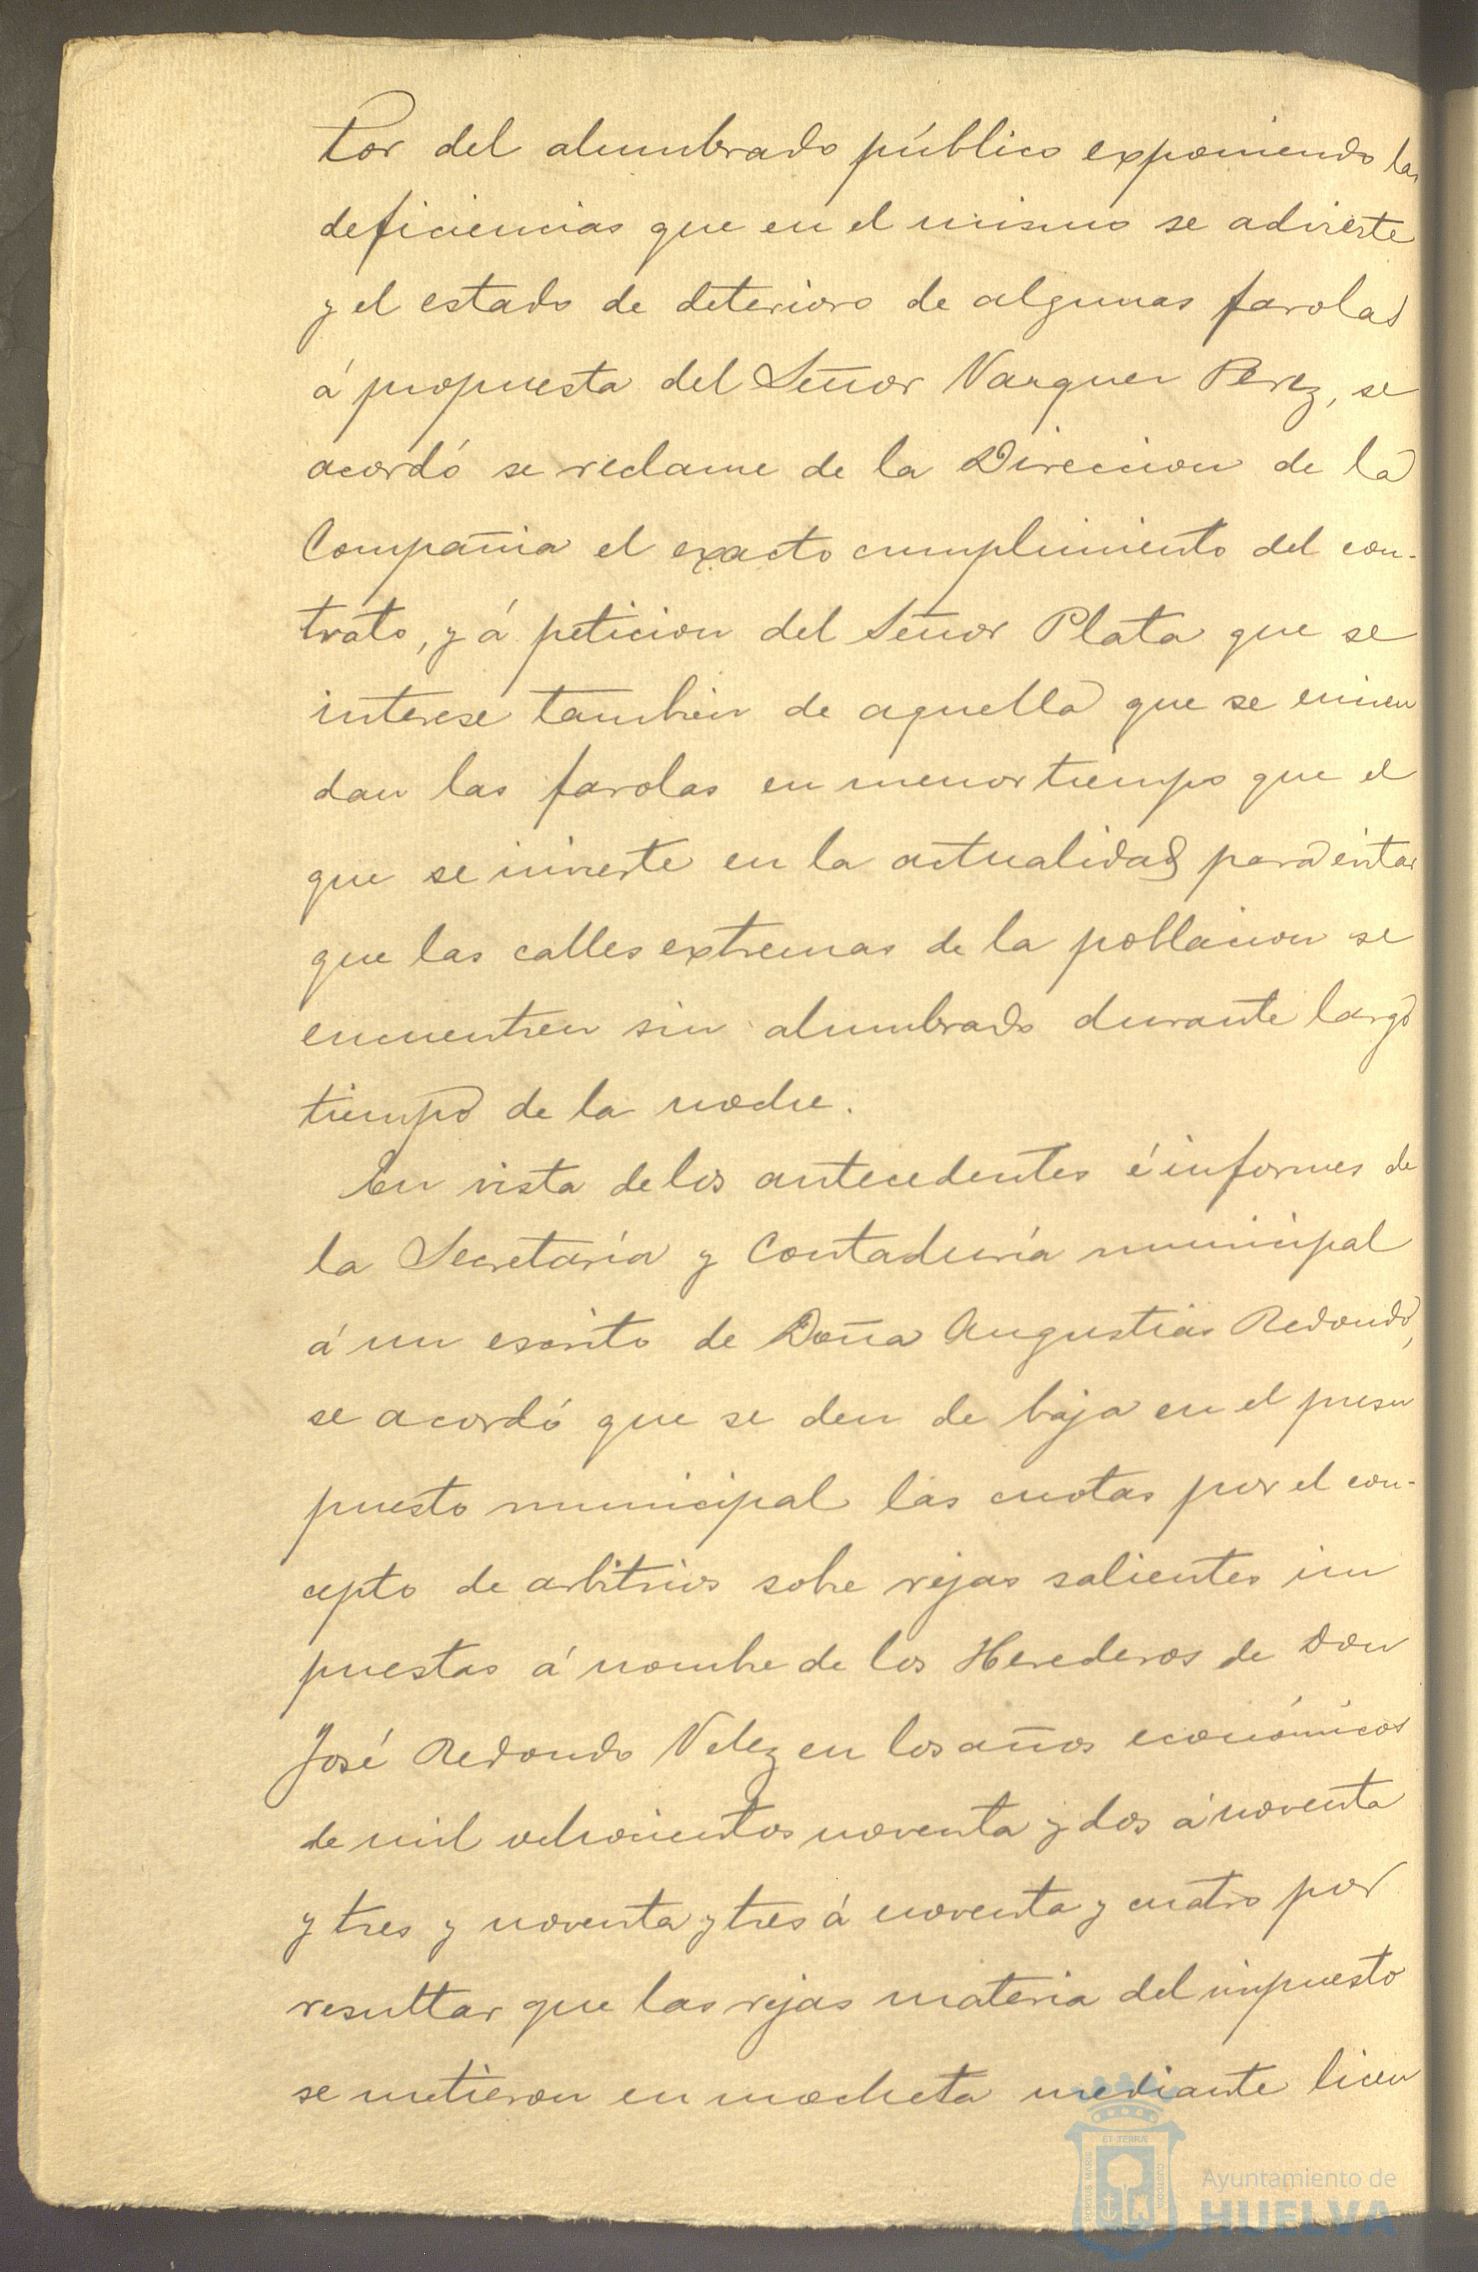 tor del alumbrado público exponiendo las
deficiencias que en el mismo se advierte
y el estado de deterioro de algunas farolas
á propuesta del Señor Vazquez Perez, se
acordó se reclame de la Direccion de la
Compañia el exacto cumplimiento del con-
trato, y á peticion del Señor Plata que se
interese tambien de aquella que se encien
dan las farolas en menor tiempo que el
que se invierte en la actualidad para evitar
que las calles extremas de la poblacion se
encuentren sin alumbrado durante largo
tiempo de la noche.
En vista de los antecedentes é informes de
la Secretaría y Contaduría municipal
á un escrito de Doña Angustias Redondo,
se acordó que se den de baja en el presu
puesto municipal las cuotas por el con-
cepto de arbitrios sobre rejas salientes im
puestas á nombre de los Herederos de Don
José Redondo Velez en los años económicos
de mil ochocientos noventa y dos á noventa
y tres y noventa y tres á noventa y cuatro por
resultar que las rejas materia del impuesto
se metieron en mocheta mediante licen
Ayuntamiento de
HUELVA